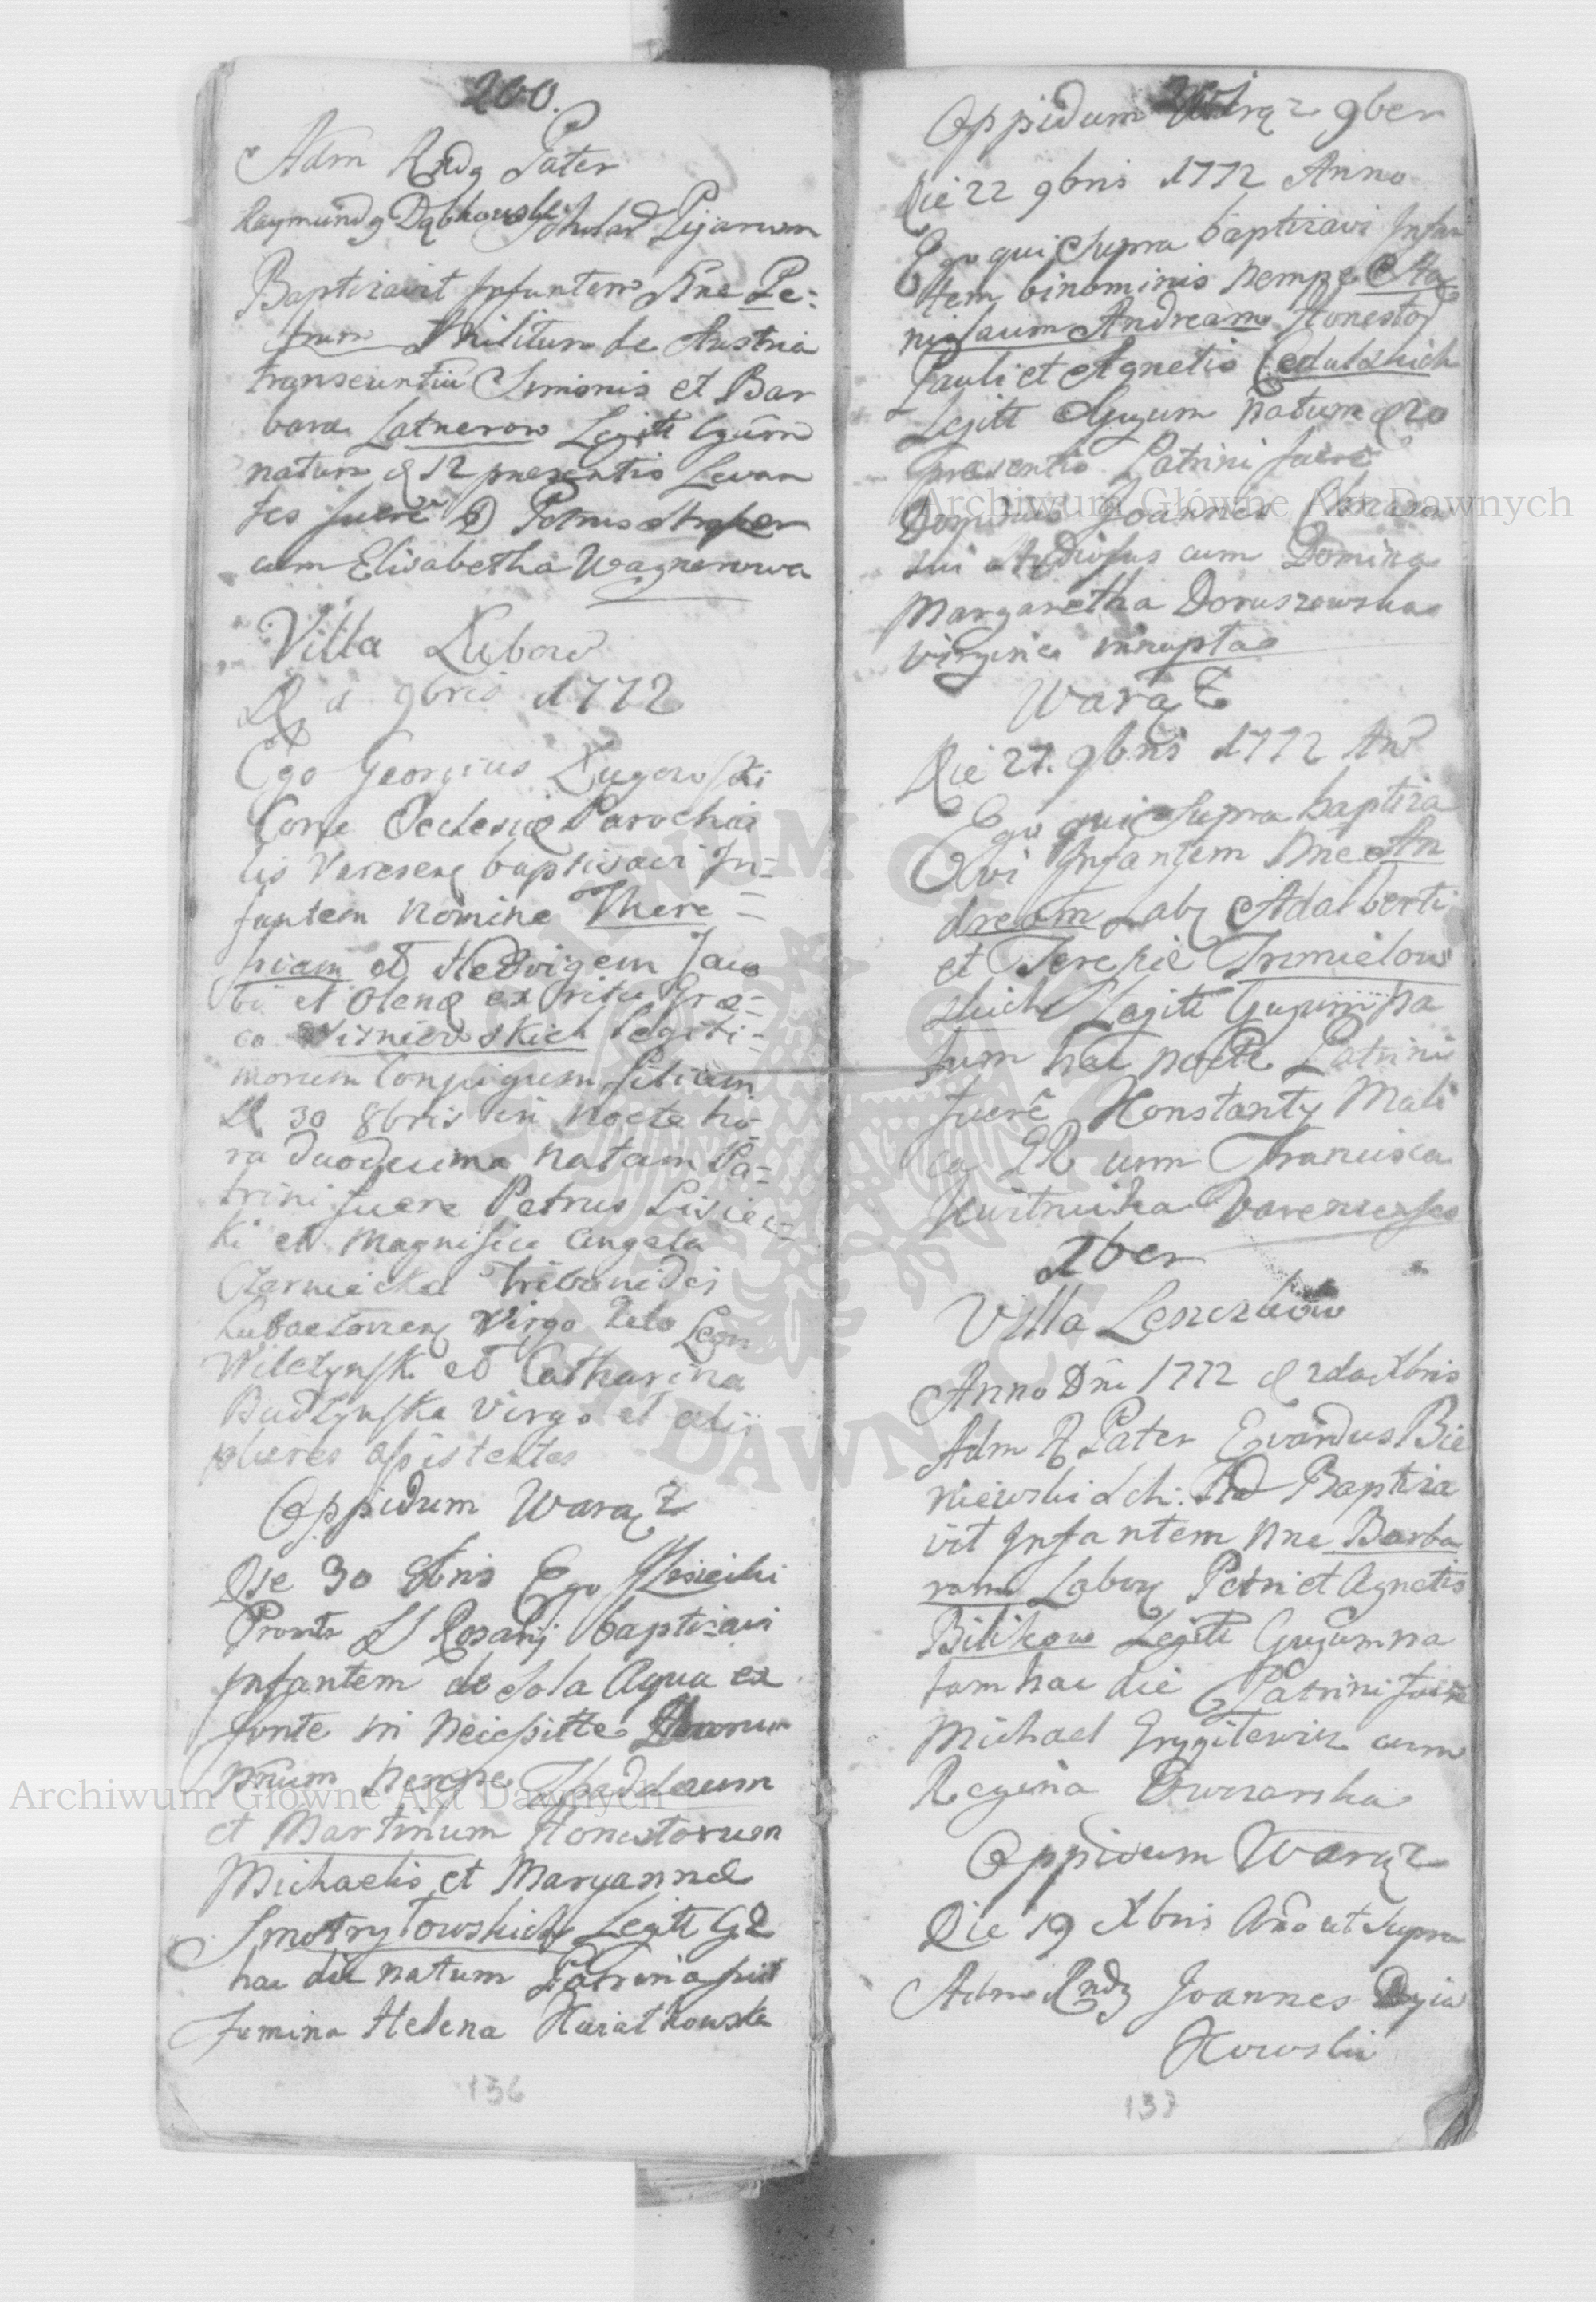 200.
Adm Rndq Pater
Raymundq Dąbkowski Scholar Pijarum
Baptizavit Infantem Nne Pe:
trum Militum de Austria
transeuntiū Simonis et Bar
bara Latnerow Legitt Cgūm
natum d 12 praesentis Levan
tes fuere D Petrus
cum Elisabetha Wagnerowa
Villa Lubow
D a 9bris 1772
Ego Georgius Ługowski
Ecclesiæ Parochia
lis Varesen baptisavi In=
fantem nomine There=
siam et Hedvigem Jaco
bi et Olenæ ex ritu Græ=
co Wisniewskich legiti=
morum Conjugum filiam
D 30 8bris in nocte ho=
ra duodecima natam Pa=
trini fuere Petrus Lisiec=
ki et Magnifica Angela
Czarniecka Tribunidei
Virgo
Wilczynski et Catharina
Budzynska Virgo et alij
plures assistentes
Oppidum Waraz
Die 30 8bris Ego
SS Rosarij baptizavi
Infantem de sola Aqua ex
fonte in neicessitte Duorum
Nnum nempe Thaddaeum
et Martinum Honestorum
Michaelis et Maryannæ
Smotrytowskich Legitt
hac die natum Patrina fuit
femina Helena Kwiatkowska
136
201
Oppidum Warąz 9ber
Die 22 9bris 1772 Anno
Ego qui supra baptizavi Infan
tem binominis nempe Sta
nislaum Andream Honestor
Pauli et Agnetis Cedulskich
Legitt Cgugum natum d 20
praesentis Patrini fuere
Dominus Joannes
cum Domina
Margaretha Doruszowska
virgine innupta
Warąz
Die 27. 9bris 1772 An
Ego qui supra baptiza
vi Infantem Nne An
dream Lab Adalberti
et Teresiæ Trmielow
skich Legitt Gugum na
tum hac nocte Patrini
fuere Konstanty Mali
ca cum Francisca
Varenienses
Xber
Villa Leszczkow
Anno Dni 1772 d 2da Xbris
Adm R Pater Evardus Bie
niewski Sch: Baptiza
vit Infantem Nne Barba
ram Labor Petri et Agnetis
Bilikow Legitt Gugum na
tam hac die Patrini fuere
Michael Grygilewicz cum
Regina Owczarska
Oppidum Warąz
Die 19 Xbris Ano ut supra
Adm Rndq Joannes
137
Archiwum Główne Akt Dawnych
Archiwum Główne Akt Dawnych